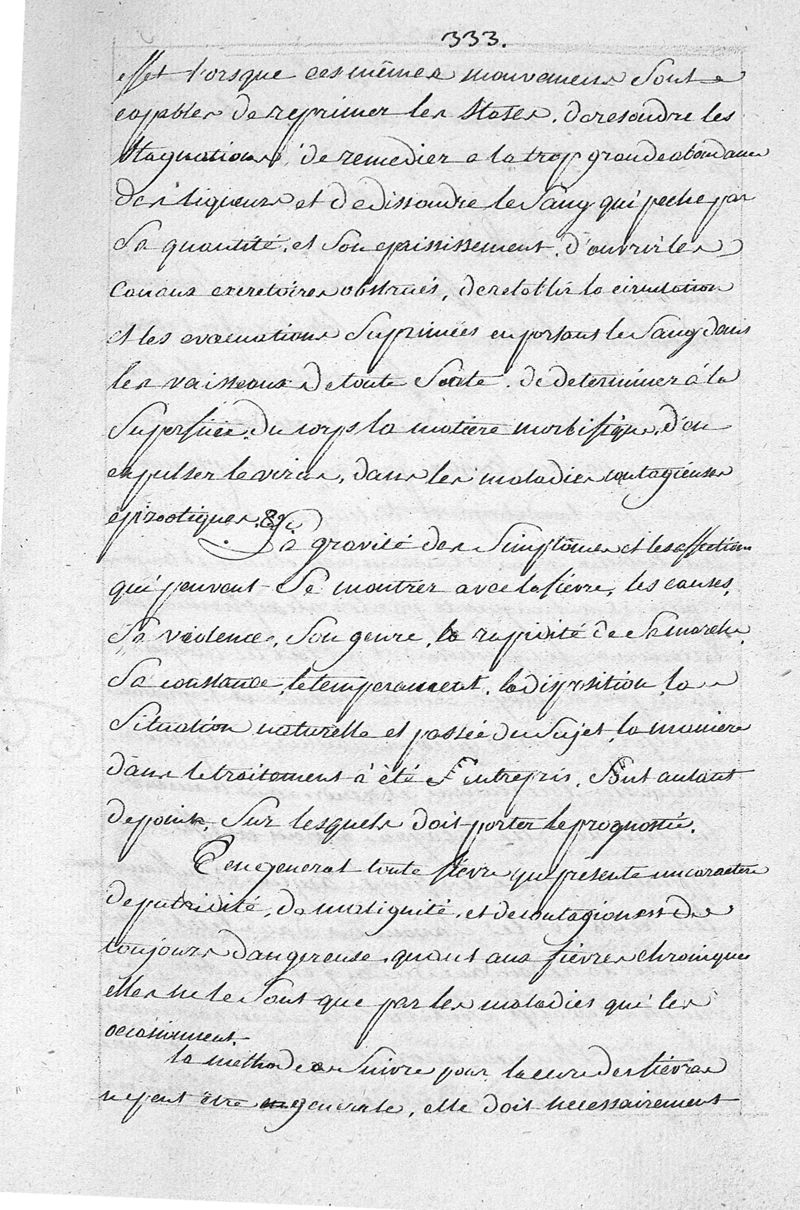 333.
effet lorsque ces mêmes mouvemens Sont
capables de reprimer les Stases, de resoudre les
Stagnations, de remedier a la trop grande abondance
des liqueurs et de dissoudre le Sang qui peche par
Sa quantité, et Son epaississement, d'ouvrir les
Canaux excretoires obstrués, de retablir la circulation
et les evacuations Suprimées en portant le Sang dans
les vaisseaux de toute Sorte, de determiner á la
Superficie du corps la matiere morbifique, d'en
expulser le virus, dans les maladies contagieuses
épizootiques &c.
La gravité des Simptômes et les affections
qui peuvent Se montrer avec la fievre, les causes,
Sa violence, Son genre, la rapidité de Sa marche,
Sa constance, le temperament, la disposition la
Situation naturelle et passée du Sujet, la maniere
dans le traitement á été Entrepris, Sont autant
de points, Sur lesquels doit porter le prognostic.
En general toute fievre qui présente un caractere
de putridité, de malignité, et de contagion est
toujours dangereuse, quant aux fievres chroniques
elles ne le Sont que par les maladies qui les
occasionnent.
la methode a Suivre pour la cure des fiévres
ne peut être generale, elle doit necessairement